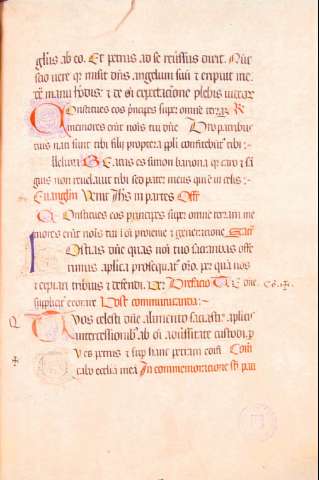 gelus ab eo. Et petrus ad se reuersus dixit. Nūc
scio vere q̄ misit dn̄s angelum suū ⁊ eripuit me
de manu herodis: ⁊ de oī expectacione plebis iudeoꝝ
Constitues eos prīcipes super omnē terrā: R
memores erūt nōīs tui dn̄e Pro patribus
tuis nati sunt tibi filij propterea ppl̄i confitebūt̄ tibi:
lleluia Beatus es simon bariona q̄ caro ⁊ sā
guis non reuelauit tibi sed pater meus qui ē in celis:
Euāgliū Venit Jhs̄ in partes Off̄
Constitues eos principes super omnē terram me
mores erūt nōīs tui ī oī progenie ⁊ generatione
Hostias dn̄e quas noī tuo sacrandas offe
rimus apl̄ica prosequat̄ or̄o. per quā nos
⁊ expiari tribuis ⁊ defendi. Prefacio
supplicit̄ exorare Post communicanda:
Q Quos celesti dn̄e alimento saciasti: apl̄icis
intercessionibꝰ ab oī aduersitate custodi. p
Tu es petrus ⁊ sup hanc petram
cabo eccl̄ia mea In commemoracione sc̄i pau